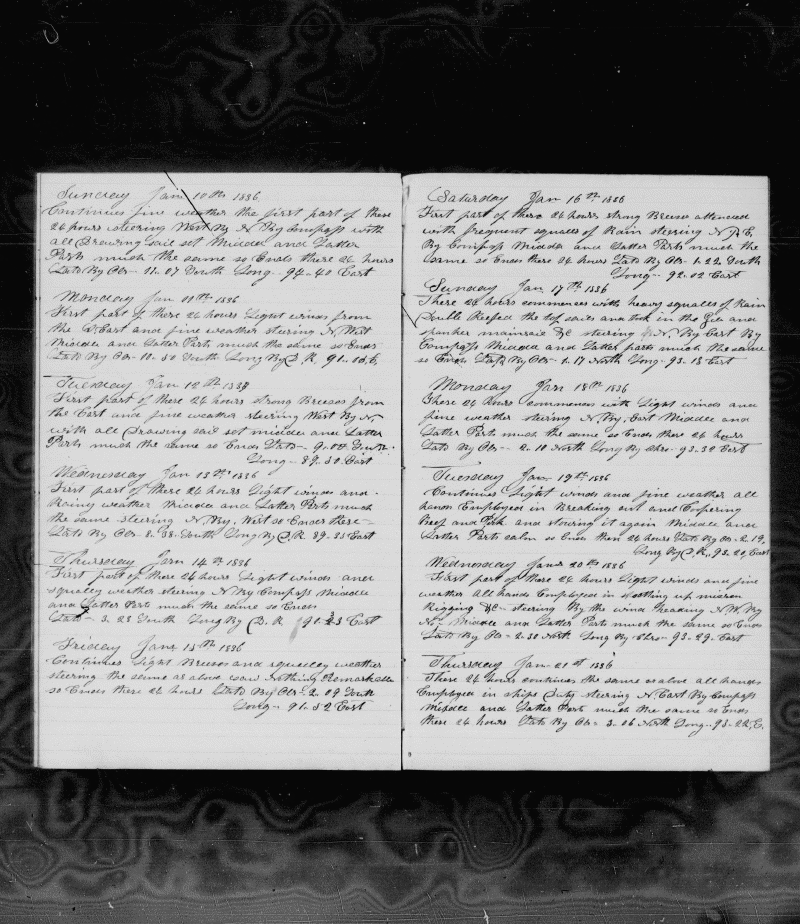 Sunday Jan 10th 1836
Continues fine weather the first part of these
24 hours steering West By N By Compass with
all Drawing sail set Middle and Latter
Parts much the same so Ends these 24 hours
Latd By Obs - 11.07 South Long - 94-40 East
Monday Jan 11th 1836
First part of these 24 hours Light winds from
the East and fine weather steering N. West
Middle and Latter Parts much the same so Ends
Latd By Obs - 10-50 South Long By D.R. 91-
Tuesday Jan 12th
First part of these 24 hours strong Breeses from
the East and fine weather steering West By N.
with all Drawing sail set middle and Latter
Parts much the same so Ends Latd - 9.04 South.
Long - 89.30 East
Wednesday Jan 13th 1836
First part of these 24 hours Light winds and
Rainy weather Middle and Latter Parts much
the same steering N. By. West so Ends these
Latd By Obs - 8-38- South Long By D.R. 89-35 East
Thursday Jan 14th 1836
First part of these 24 hours Light winds and
squaley weather steering N By Compass Middle
and Latter Parts much the same so Ends
Latd - 3.28 South Long By D.R 90-23 East
Friday Jan 15th 1836
Continues Light Breeses and squaley weather
steering the same as above saw Nothing Remarkable
so Ends these 24 hours Latd By Obs - 2.09 South
Long - 91-52 East
Saturday Jan 16th 1836
First part of these 24 hours strong Breeses attended
with frequent squalls of Rain steering N.
By Compass Middle and Latter Parts much the
same so Ends these 24 hours Latd By Obs - 1-22 South
Long - 92.02 East
Sunday Jan 17th 1836
These 24 hours commences with heavy squalls of Rain
Double Reefed the top sails and took in the Gib and
spanker mainsail &c steering N. By East By
Compass Middle and Latter parts much the same
so Ends Latd By Obs - 1.17 North Long - 93-13 East
Monday Jan 18th 1836
These 24 hours commences with Light winds and
fine weather steering N. By. East Middle and
Latter Parts much the same so Ends these 24 hours
Latd By Obs - 2.10 North Long By Chro - 93-30 East
Tuesday Jan 19th 1836
Continues Light winds and fine weather all
hands Employed in Breaking out and Coopering
Beef and Pork and stowing it again Middle and
Latter Parts calm so Ends these 24 hours Latd By Obs - 2.19,
Long By D.R., 93.20, East
Wednesday Jan 20th 1836
First part of these 24 hours Light winds and fine
weather all hands Employed in setting up mizen
Rigging &c - steering By the wind heading N.W. By
N. Middle and Latter Parts much the same so Ends
Latd By Obs - 2.30 North Long By Chro - 93-29- East
Thursday Jan 21st 1836
These 24 hours continues the same as above all hands
Employed in ships Duty steering N. East By Compass
Middle and Latter Parts much the same so Ends
these 24 hours Latd By Obs - 3-06 North Long - 93-22, E.